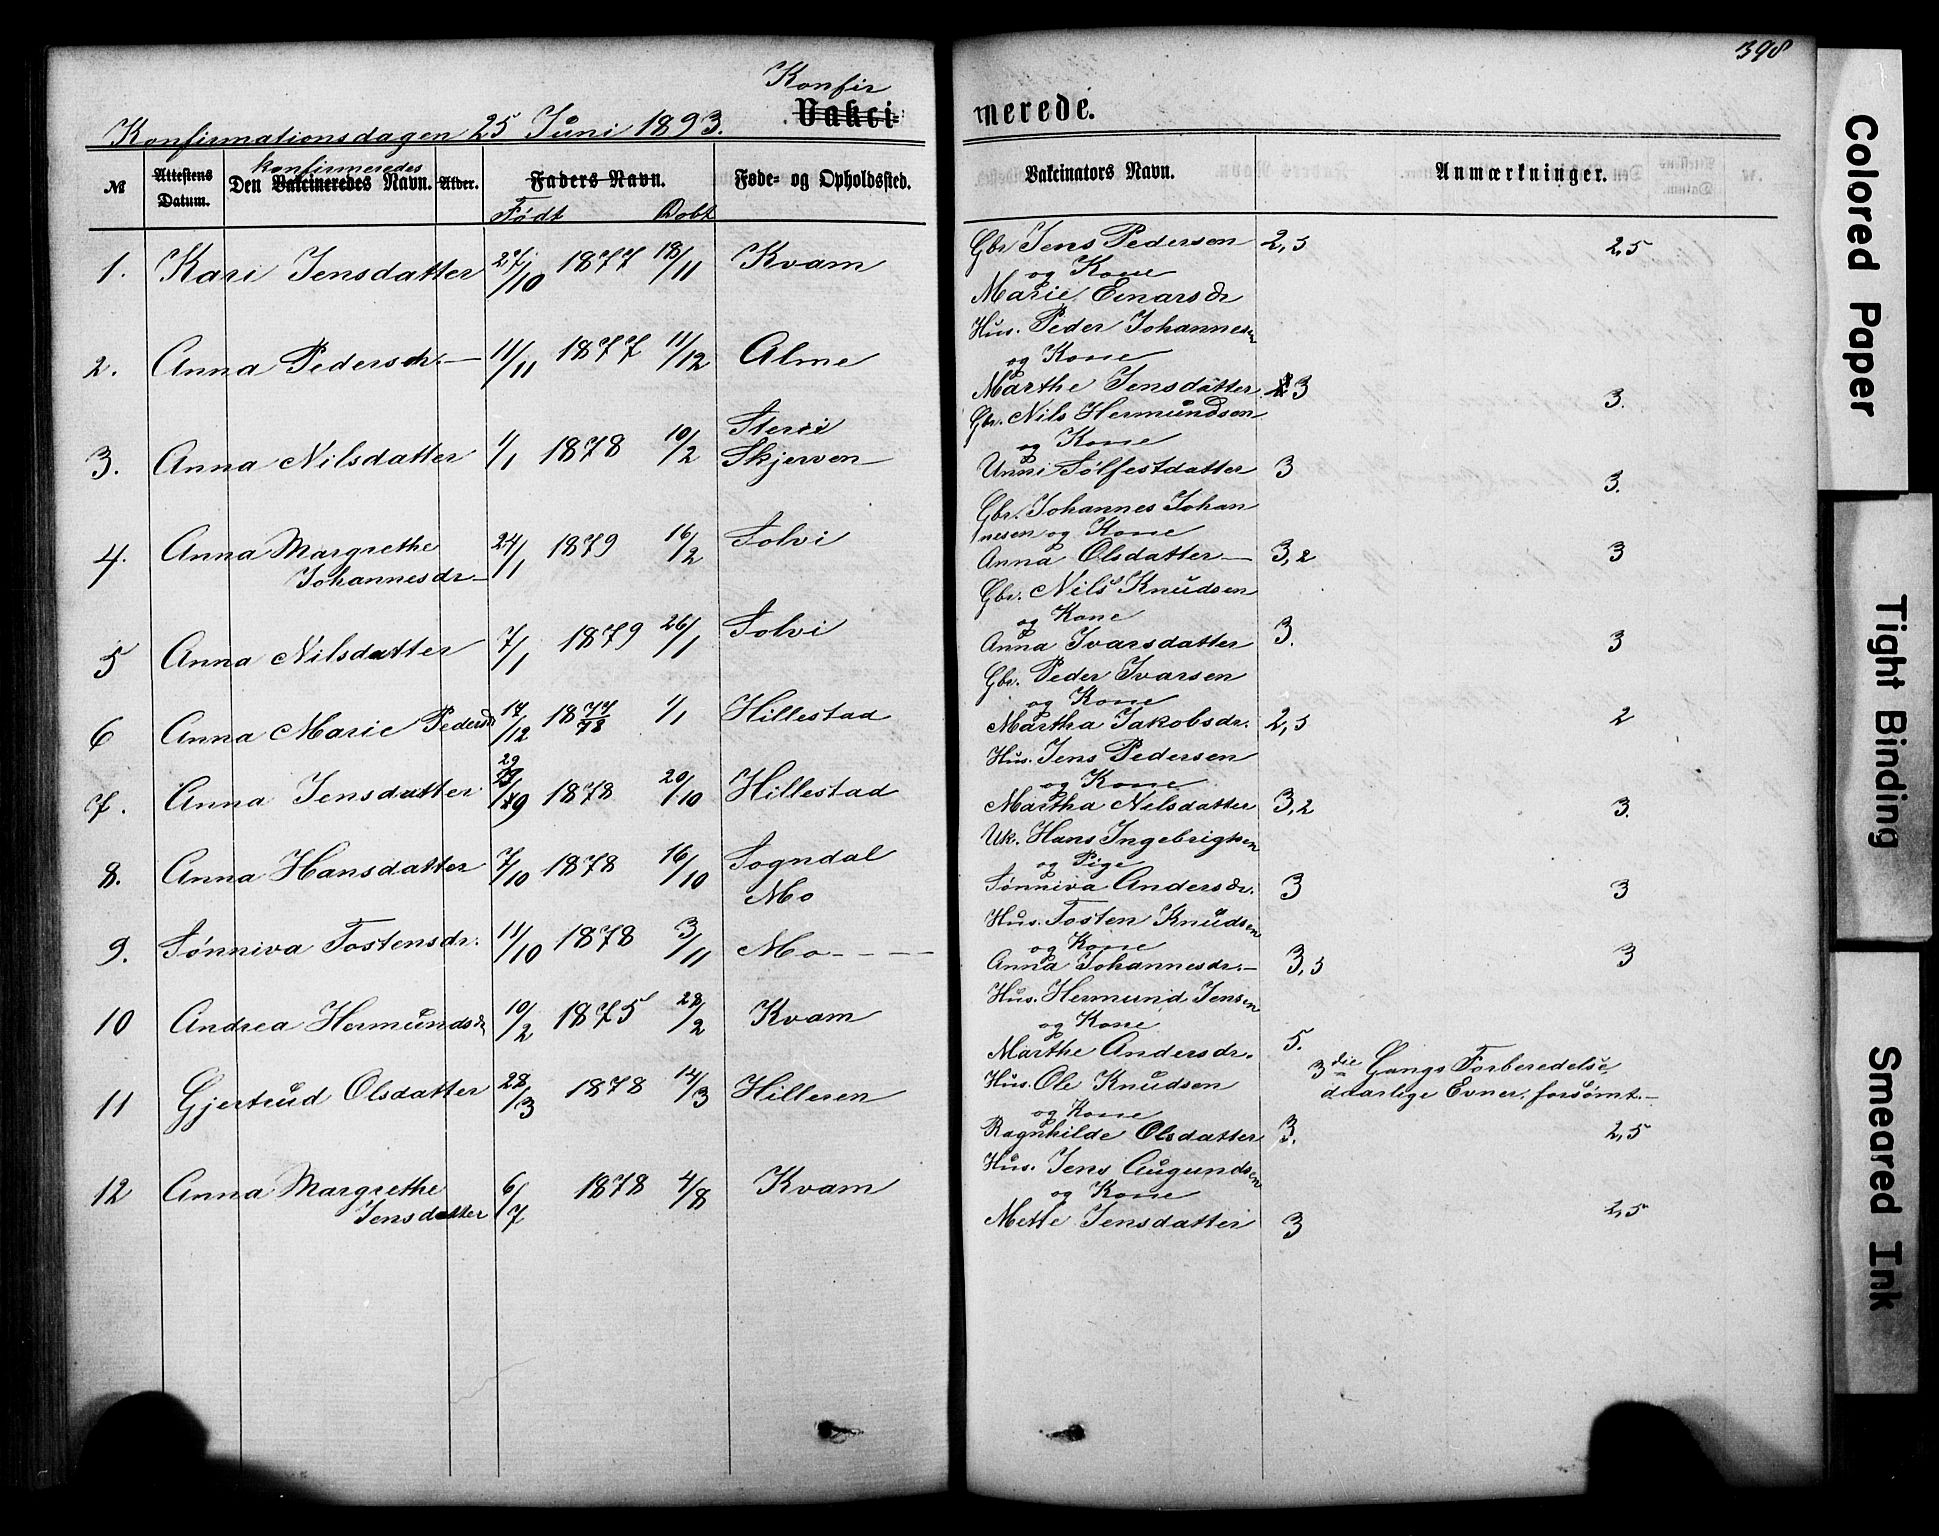 398
Konfir
Konfirmationsdagen 25 Juni 1893. Vakci- merede.
konfirmeredes
№ Attestens Datum. Den Vakcineredes Navn. Alder. Faders Navn. Føde- og Opholdssted. Vakcinators Navn. Anmærkninger.
Født Døbt
1. Kari Jensdatter 27/10 1877 18/11 Kvam
Gbr Jens Pedersen 2,5 2,5
og Kone
Marie Enarsdr
2. Anna Pedersdr. 11/11 1877 11/12 Alme
Hus. Peder Johannesen
og Kone
Marthe Jensdatter 3 3.
3. Anna Nilsdatter 1/1 1878 10/2 Skjerven
Gbr. Nils Hermundsen
og Kone
Unni Sølfestdatter 3 3.
4. Anna Margrethe Johannesdr. 24/1 1879 16/2 Solvi
Gbr. Johannes Johan
nesen og Kone
Anna Olsdatter 3,2 3
5 Anna Nilsdatter 7/1 1879 26/1 Solvi
Gbr. Nils Knudsen
og Kone
Anna Ivarsdatter 3. 3
6 Anna Marie Pedersdr 17/12 1877/78 1/1 Hillestad
Gbr. Peder Ivarsen
og Kone
Martha Jakobsdr. 2,5 2
7. Anna Jensdatter 29/9 1878 20/10 Hillestad
Hus. Jens Pedersen
og Kone
Martha Nilsdatter 3,2 3.
8. Anna Hansdatter 7/10 1878 16/10 Sogndal
Mo
Uk. Hans Ingebrigtsen
og Pige
Sønniva Andersdr. 3 3
9. Sønniva Tostensdr. 11/10 1878 3/11 Mo
Hus. Tosten Knudsen
og Kone
Anna Johannesdr. 3,5 3
10 Andrea Hermundsdr 19/2 1875 28/2 Kvam
Hus. Hermund Jensen
og Kone
Marthe Andersdr. 5.
3die Gangs Forberedelse
daarlige Evner. forsømt.
11 Gjertrud Olsdatter 28/3 1878 14/3 Hilleren
Hus. Ole Knudsen
og Kone
Ragnhilde Olsdatter 3. 2,5
12 Anna Margrethe Jensdatter 6/7 1878 4/8 Kvam
Hus. Jens Augundsen
og Kone
Mette Jensdatter 3 2,5
Colored Paper
Tight Binding
Smeared Ink